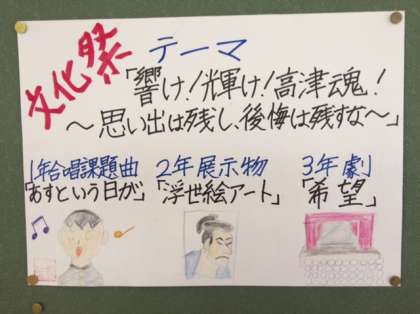 文化祭 テーマ
「響け!輝け!高津魂!
～思い出は残し、後悔は残すな～」
1年合唱課題曲
「あすという日が」
2年展示物
「浮世絵アート」
3年劇
「希望」